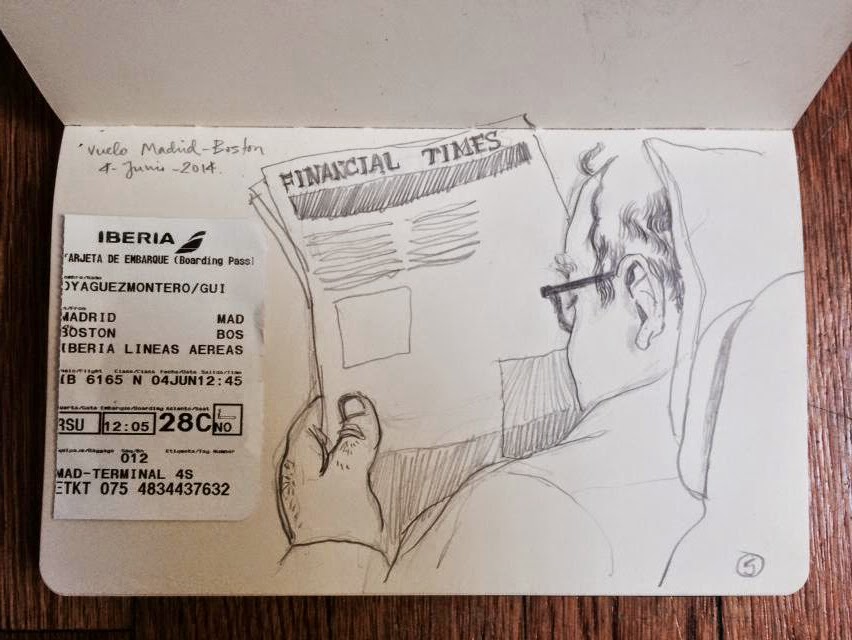 Vuelo Madrid-Boston
4-Junio-2014.
FINANCIAL TIMES
IBERIA
TARJETA DE EMBARQUE (Boarding Pass)
OYAGUEZMONTERO/GUI
MADRID MAD
BOSTON BOS
IBERIA LINEAS AEREAS
IB 6165 N 04JUN12:45
RSU 12:05 28C NO
012
MAD-TERMINAL 4S
ETKT 075 4834437632
5